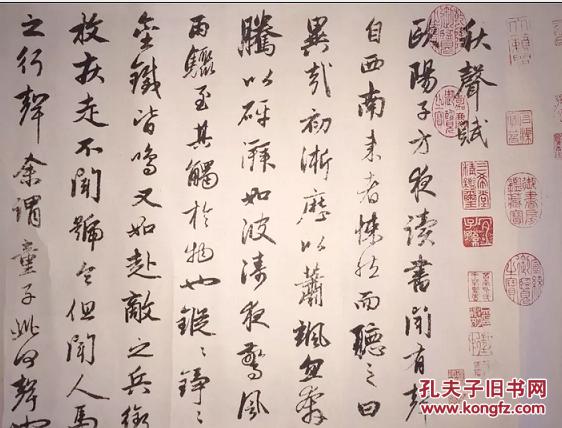 秋聲賦
歐陽子方夜讀書聞有聲
自西南来者悚然而聽之曰
異哉初淅瀝以蕭颯忽奔
騰以砰湃如波濤夜驚風
雨驟至其觸於物也鏦〻錚〻
金鐵皆鳴又如赴敵之兵銜
枚疾走不聞號令但聞人馬
之行聲余謂童子此何聲也
三希堂精鑑璽
宜子孫
御書房鑑藏寶
孔夫子旧书网
www.kongfz.com